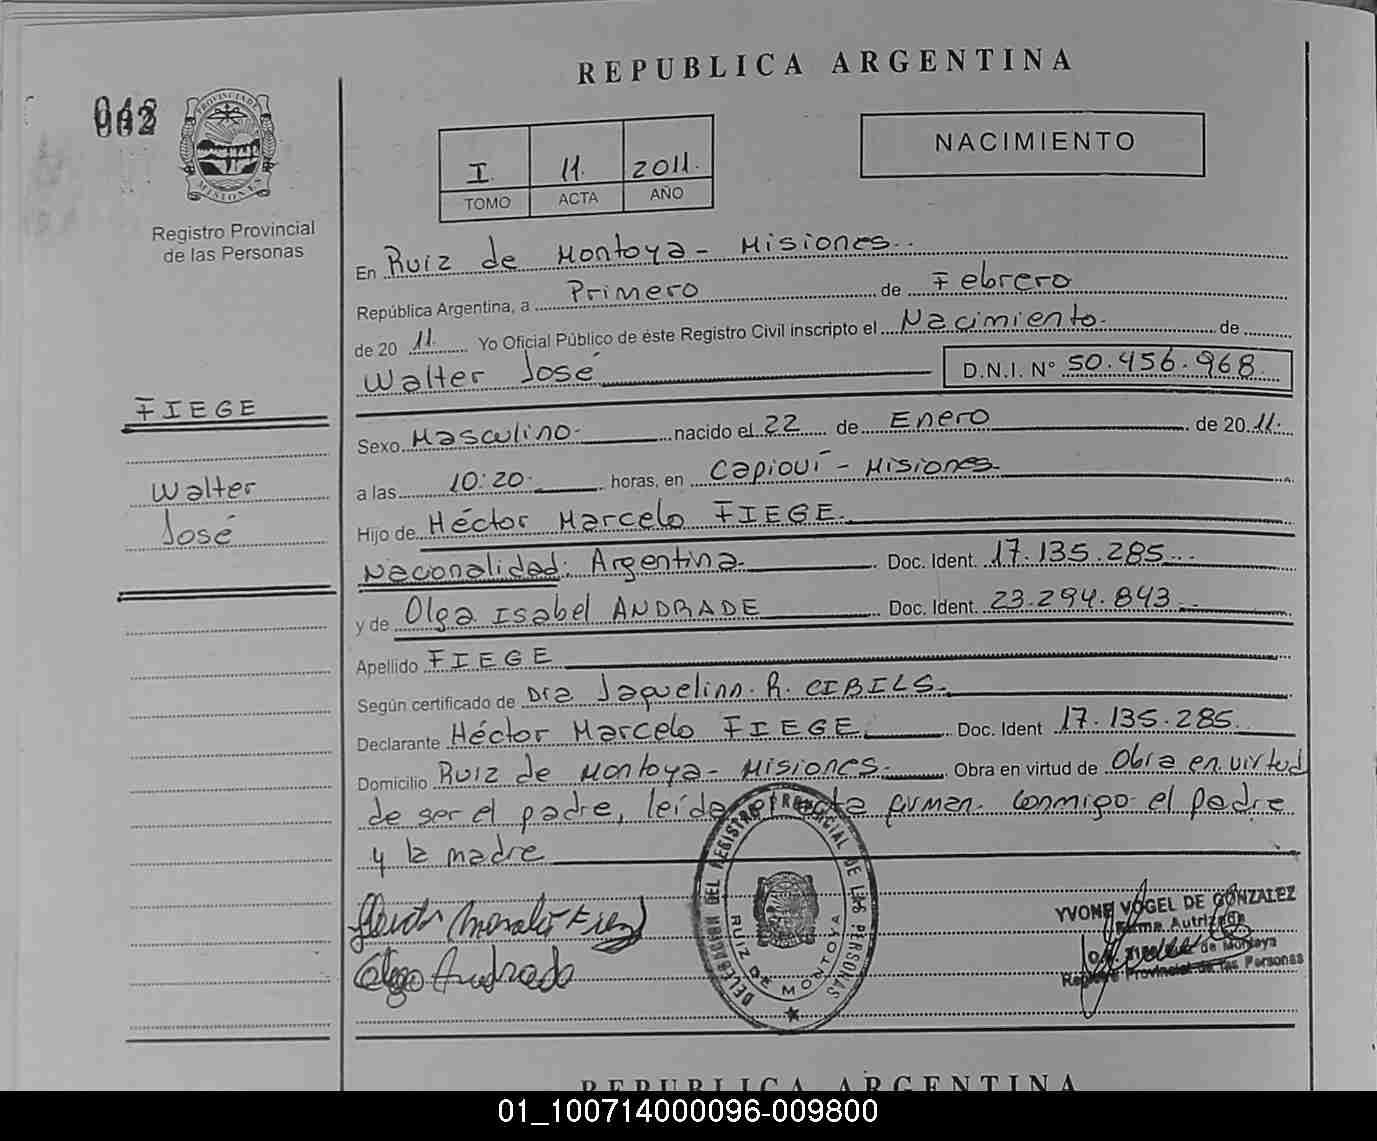 REPUBLICA ARGENTINA
PROVINCIA DE
MISIONES
Registro Provincial
de las Personas
I 11. 2011.
TOMO ACTA AÑO
NACIMIENTO
En Ruiz de Montoya - Misiones.
República Argentina, a Primero de Febrero
de 20 11. Yo Oficial Público de éste Registro Civil inscripto el Nacimiento de
Walter José D.N.I. N° 50.456.968
FIEGE
Walter
José
Sexo Masculino nacido el 22 de Enero de 20 11.
a las 10:20 horas, en Capioví - Misiones
Hijo de Héctor Marcelo FIEGE.
Naconalidad: Argentina Doc. Ident. 17.135.285
y de Olga Isabel ANDRADE Doc. Ident. 23.294.843
Apellido FIEGE
Según certificado de Dra Jaquelinn. R. CIBILS.
Declarante Héctor Marcelo FIEGE. Doc. Ident 17.135.285
Domicilio Ruiz de Montoya - Misiones. Obra en virtud de Obra en virtud
de ser el padre, leída el acta firman conmigo el padre
y la madre
DELEGACION DEL REGISTRO PROVINCIAL DE LAS PERSONAS
RUIZ DE MONTOYA
Olga Andrade
YVONE VOGEL DE GONZALEZ
de Montoya
Registro Provincial de las Personas
REPUBLICA ARGENTINA
01_100714000096-009800